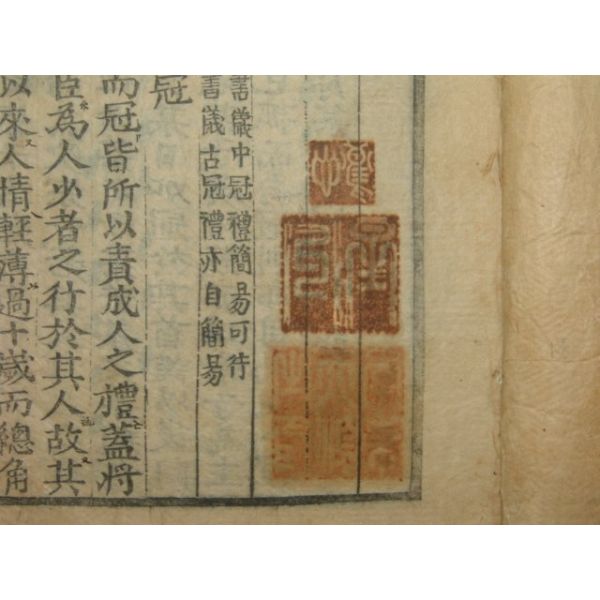 書儀中冠禮簡易可行
書儀古冠禮亦自簡易
冠
而冠皆所以責成人之禮蓋將
臣為人少者之行於其人故其
以來人情輕薄過十歲而總角